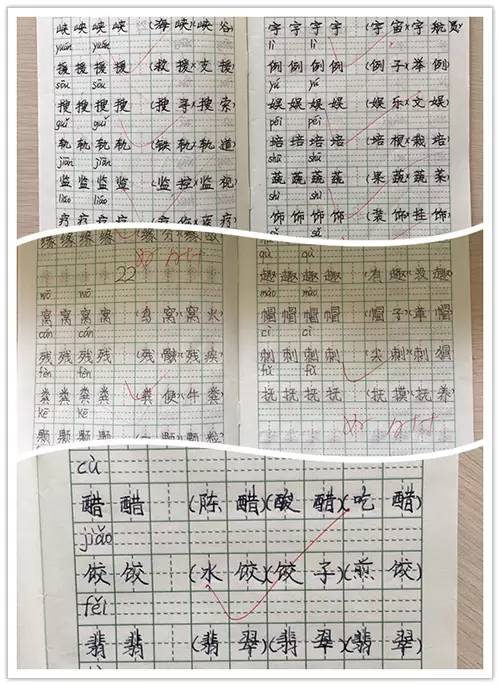 峡 峡 峡 峡 (海峡)(峡谷)
yuán yuán
援 援 援 援 (救援)(支援)
sōu sōu
搜 搜 搜 搜 (搜寻)(搜索)
guǐ guǐ
轨 轨 轨 轨 (铁轨)(轨道)
jiān jiān
监 监 监 监 (监控)(监视)
liáo liáo
疗 疗 疗 疗
宇 宇 宇 宇 (宇宙)(宇航员)
lì lì
例 例 例 例 (例子)(举例)
yú yú
娱 娱 娱 娱 (娱乐)(文娱)
péi péi
培 培 培 培 (培根)(栽培)
shū shū
蔬 蔬 蔬 蔬 (果蔬)(蔬菜)
shì shì
饰 饰 饰 饰 (装饰)(挂饰)
缘 缘 缘 缘
22
wō wō
窝 窝 窝 窝
cán cán
残 残 残 残
fèn fèn
粪 粪 粪 粪 (粪便)(牛粪)
kē
颗 颗 颗 颗
qù qù
趣 趣 趣 趣 (有趣)(没趣)
mào mào
帽 帽 帽 帽 (帽子)(草帽)
cì cì
刺 刺 刺 刺 (尖刺)(刺猬)
fǔ fǔ
抚 抚 抚 抚 (抚摸)(抚养)
cù
醋 醋 (陈醋)(酸醋)(吃醋)
jiǎo
饺 饺 (水饺)(饺子)(煎饺)
fěi
翡 翡 (翡翠)(翡翠)(翡翠)